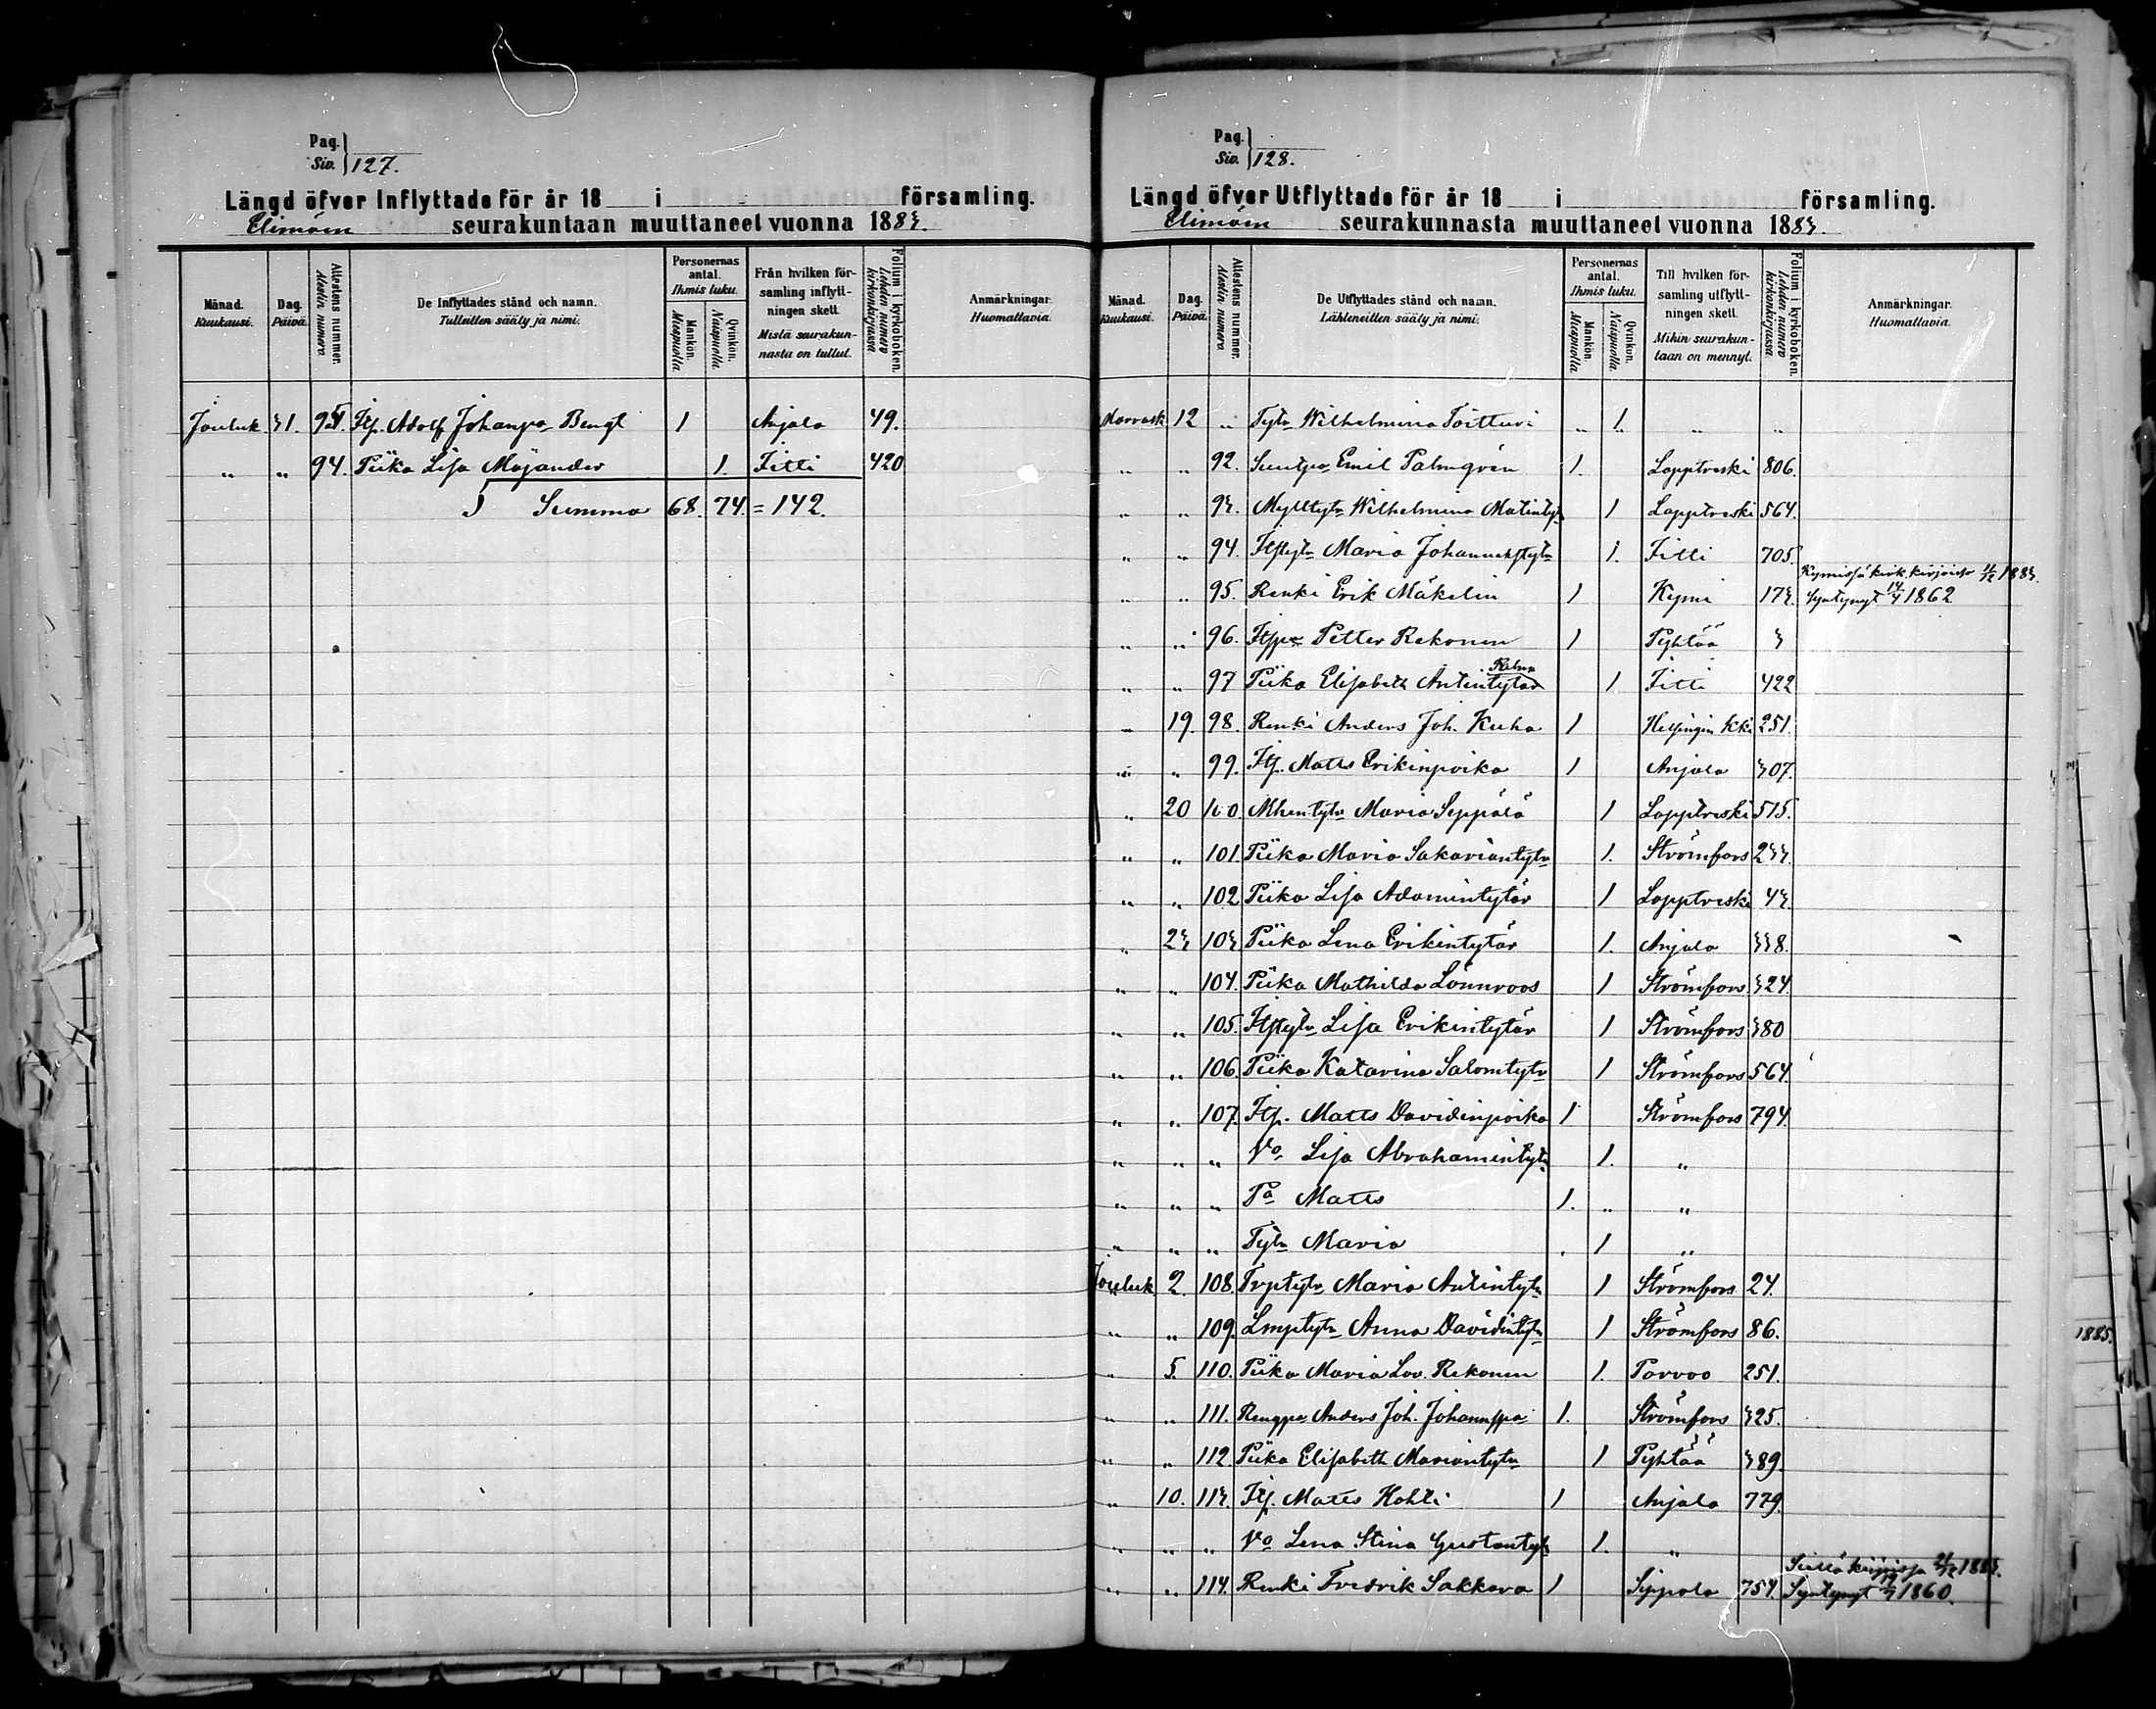 Pag.
Siv. 127.
Längd öfver Inflyttade för år 18 i församling.
Elimäen seurakuntaan muuttaneet vuonna 1883.
Månad. Kuukausi.
Dag. Päivä.
Attestens nummer. Attestin numero.
De Inflyttades stånd och namn. Tulleitten sääty ja nimi.
Personernas antal. Ihmis luku.
Mankön. Miespuolta.
Qvinkön. Naispuolta.
Från hvilken församling inflyttningen skett. Mistä seurakunnasta on tullut.
Folium i kyrkoboken. Lehden numero kirkonkirjassa
Anmärkningar. Huomattavia.
Jouluk. 31. 93. Itp. Adolf Johanpa Bengt 1 Anjala 49.
" " 94. Piika Lisa Mäjander 1. Iitti 420
Summa 68. 74. = 142.
Pag.
Siv. 128.
Längd öfver Utflyttade för år 18 i församling.
Elimäen seurakunnasta muuttaneet vuonna 1883.
Månad. Kuukausi.
Dag. Päivä.
Attestens nummer. Attestin numero.
De Utflyttades stånd och namn. Lähteneitten sääty ja nimi.
Personernas antal. Ihmis luku.
Mankön. Miespuolta.
Qvinkön. Naispuolta.
Till hvilken församling utflyttningen skett. Mihin seurakuntaan on mennyt.
Folium i kyrkoboken. Lehden numero kirkonkirjassa.
Anmärkningar. Huomattavia.
Marrask 12 " Tytr Wilhelmina Toitturi " 1. " "
" " 92. Emil Palmqvén 1. Lapptreski 806.
" " 93. Mylltytr Wilhelmina Matintyt 1 Lapptreski 564.
" " 94. Itstytr Maria Johanneksstytr 1. Iitti 705.
" " 95. Renki Erik Mäkelin 1 Kymi 173. Kymissä kirk. kirjoist 11/12 1883.
Syntynyt 14/4 1862
" " 96. Itspa Petter Rekonen 1 Pyhtää 3
" " 97 Piika Elisabeth Antintytär 1 Iitti 422
" 19. 98. Renki Anders Joh. Kuha 1 Helsingin kki 251.
" " 99. Itj. Matts Erikinpoika 1 Anjala 307.
" 20 100. Mhentytr Maria Seppälä 1 Lapptreski 515.
" " 101. Piika Maria Sakariantytr 1. Strömfors 233.
" " 102 Piika Lisa Adamintytär 1 Lapptreski 43.
" 23 103 Piika Lena Erikintytär 1. Anjala 338.
" " 104. Piika Mathilda Lönnroos 1 Strömfors 324.
" " 105. Itstytr Lisa Erikintytär 1 Strömfors 380
" " 106. Piika Katarina Salomtytr 1 Strömfors 564.
" " 107. Itp. Matts Davidinpoika 1 Strömfors 794.
" " " Vo Lisa Abrahamintytr 1. "
" " " Pa Matts 1. " "
" " " Tytr Maria 1 "
Jouluk 2. 108. Trptytr Maria Antintytr 1 Strömfors 24.
" " 109. Lmptytr Anna Davidintytr 1 Strömfors 86.
" 5. 110. Piika Maria Lov. Rekonen 1. Porvoo 251.
" " 111. Rengpa Anders Joh. Johanspa 1. Strömfors 325.
" " 112 Piika Elisabeth Mariantytr 1 Pyhtää 389.
" 10. 113. Itj. Matts Kohli 1 Anjala 779.
" " " Vo Lena Stina Gustantytr 1. "
" " 114. Renki Fredrik Sakkara 1 Sippola 754. Siellä kirjoissa 21/12 1883.
Syntynyt 1860.
1885.